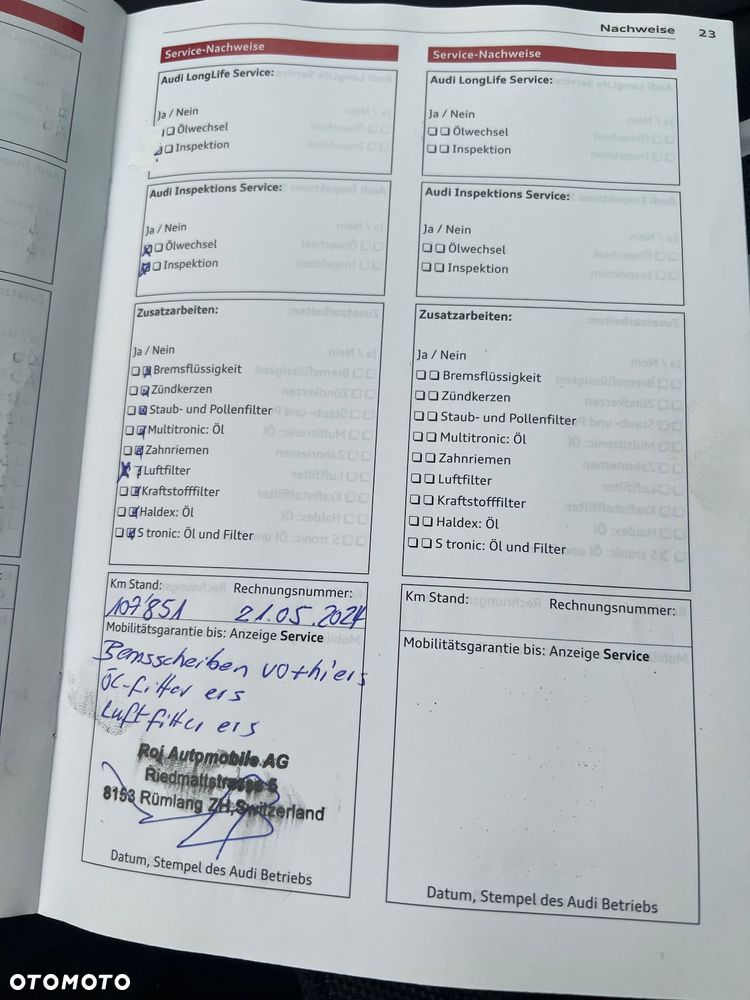 Nachweise 23
Service-Nachweise
Audi LongLife Service:
Ja / Nein
Ölwechsel
Inspektion
Audi Inspektions Service:
Ja / Nein
Ölwechsel
Inspektion
Zusatzarbeiten:
Ja / Nein
Bremsflüssigkeit
Zündkerzen
Staub- und Pollenfilter
Multitronic: Öl
Zahnriemen
Luftfilter
Kraftstofffilter
Haldex: Öl
S tronic: Öl und Filter
Km Stand: Rechnungsnummer:
107'851 21.05.2024
Mobilitätsgarantie bis: Anzeige Service
Öl-filter ers
Luftfilter ers
Roj Autpmobile AG
Riedmattstrasse 6
8153 Rümlang ZH,Switzerland
Datum, Stempel des Audi Betriebs
Service-Nachweise
Audi LongLife Service:
Ja / Nein
Ölwechsel
Inspektion
Audi Inspektions Service:
Ja / Nein
Ölwechsel
Inspektion
Zusatzarbeiten:
Ja / Nein
Bremsflüssigkeit
Zündkerzen
Staub- und Pollenfilter
Multitronic: Öl
Zahnriemen
Luftfilter
Kraftstofffilter
Haldex: Öl
S tronic: Öl und Filter
Km Stand: Rechnungsnummer:
Mobilitätsgarantie bis: Anzeige Service
Datum, Stempel des Audi Betriebs
OTOMOTO